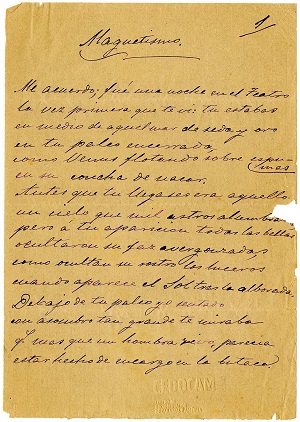 1
Magnetismo.
Me acuerdo; fué una noche en el Teatro
la vez primera que te vi: tu estabas
en medio de aquel mar de seda y oro
en tu palco encerrada,
como Venus flotando sobre espu-
mas
en su concha de nacar.
Antes que tu llegases era aquello
un cielo que mil astros alumbran
pero a tu aparicion todas las bellas
ocultaron su faz avergonzadas,
como ocultan su rostro los luceros
cuando aparece el Sol tras la alborada.
Debajo de tu palco yo sentado
con asombro tan grande te miraba
q. mas que un hombre vivo, parecia
estar hecho de encargo en la butaca.
CEDOCAM